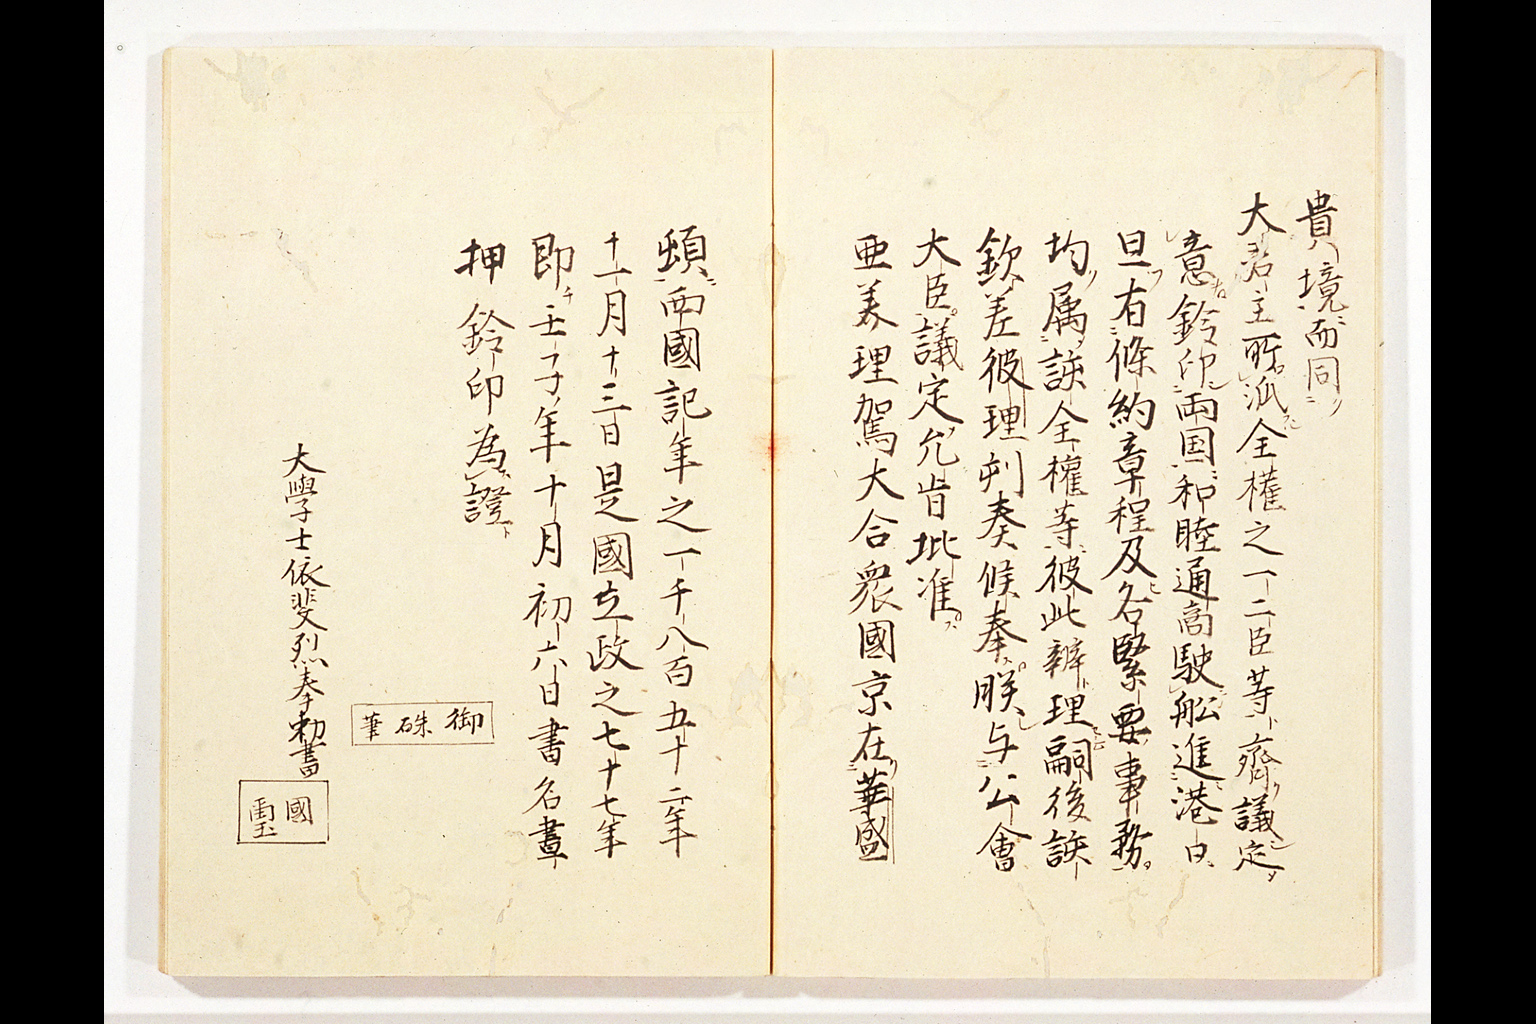 貴境而同
大君主所派全權之一二臣等齊議定
意鈐印両国和睦通商駛舩進港日
旦有條約章程及各緊要事務
均属該全權等彼此辦理嗣後該
欽差彼理刋奏候奉朕与公會
大臣議定允肯批准
亜美理駕大合衆國京在華盛
頓西國記年之一千八百五十二年
十一月十三日是國立政之七十七年
即壬子年十月初六日書名畫
押鈐印為證
御硃筆
大學士依斐烈奉勅書
國璽